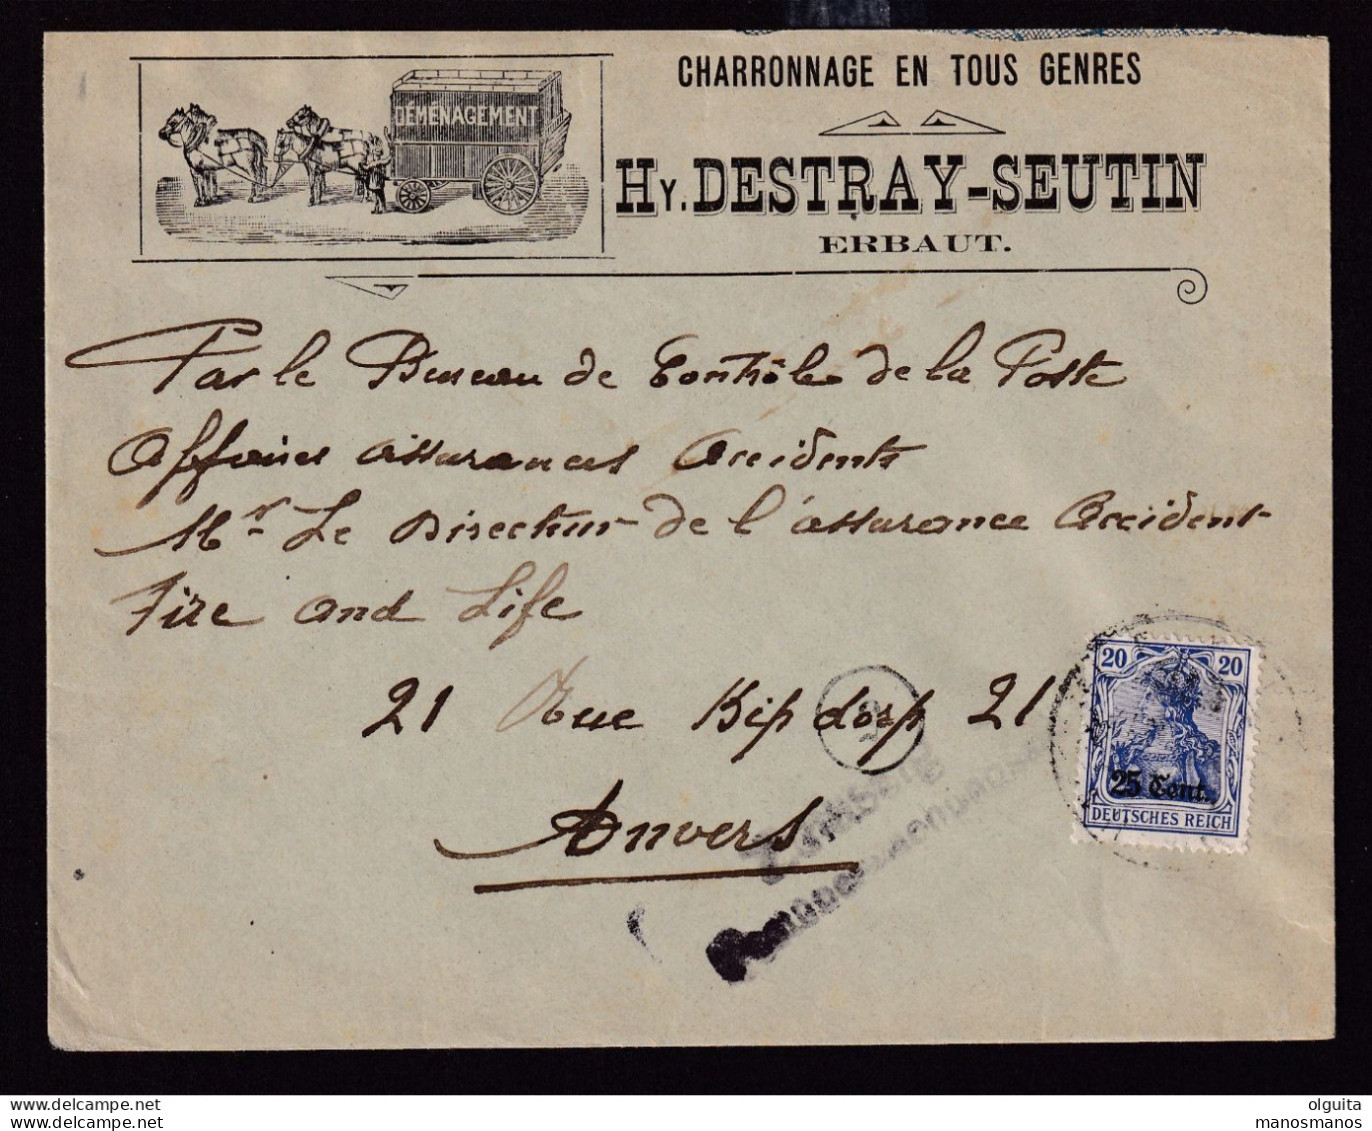 CHARRONNAGE EN TOUS GENRES
DÉMÉNAGEMENT
HY. DESTRAY-SEUTIN
ERBAUT.
Par le Bureau de Contrôle de la Poste
Affaires assurances Accidents
Mr Le Directeur de l'assurance Accident
Fire and Life
21 Rue Kipdorp 21
Anvers
20 20
25 Cent.
DEUTSCHES REICH
Zulässig
olguita
manosmanos